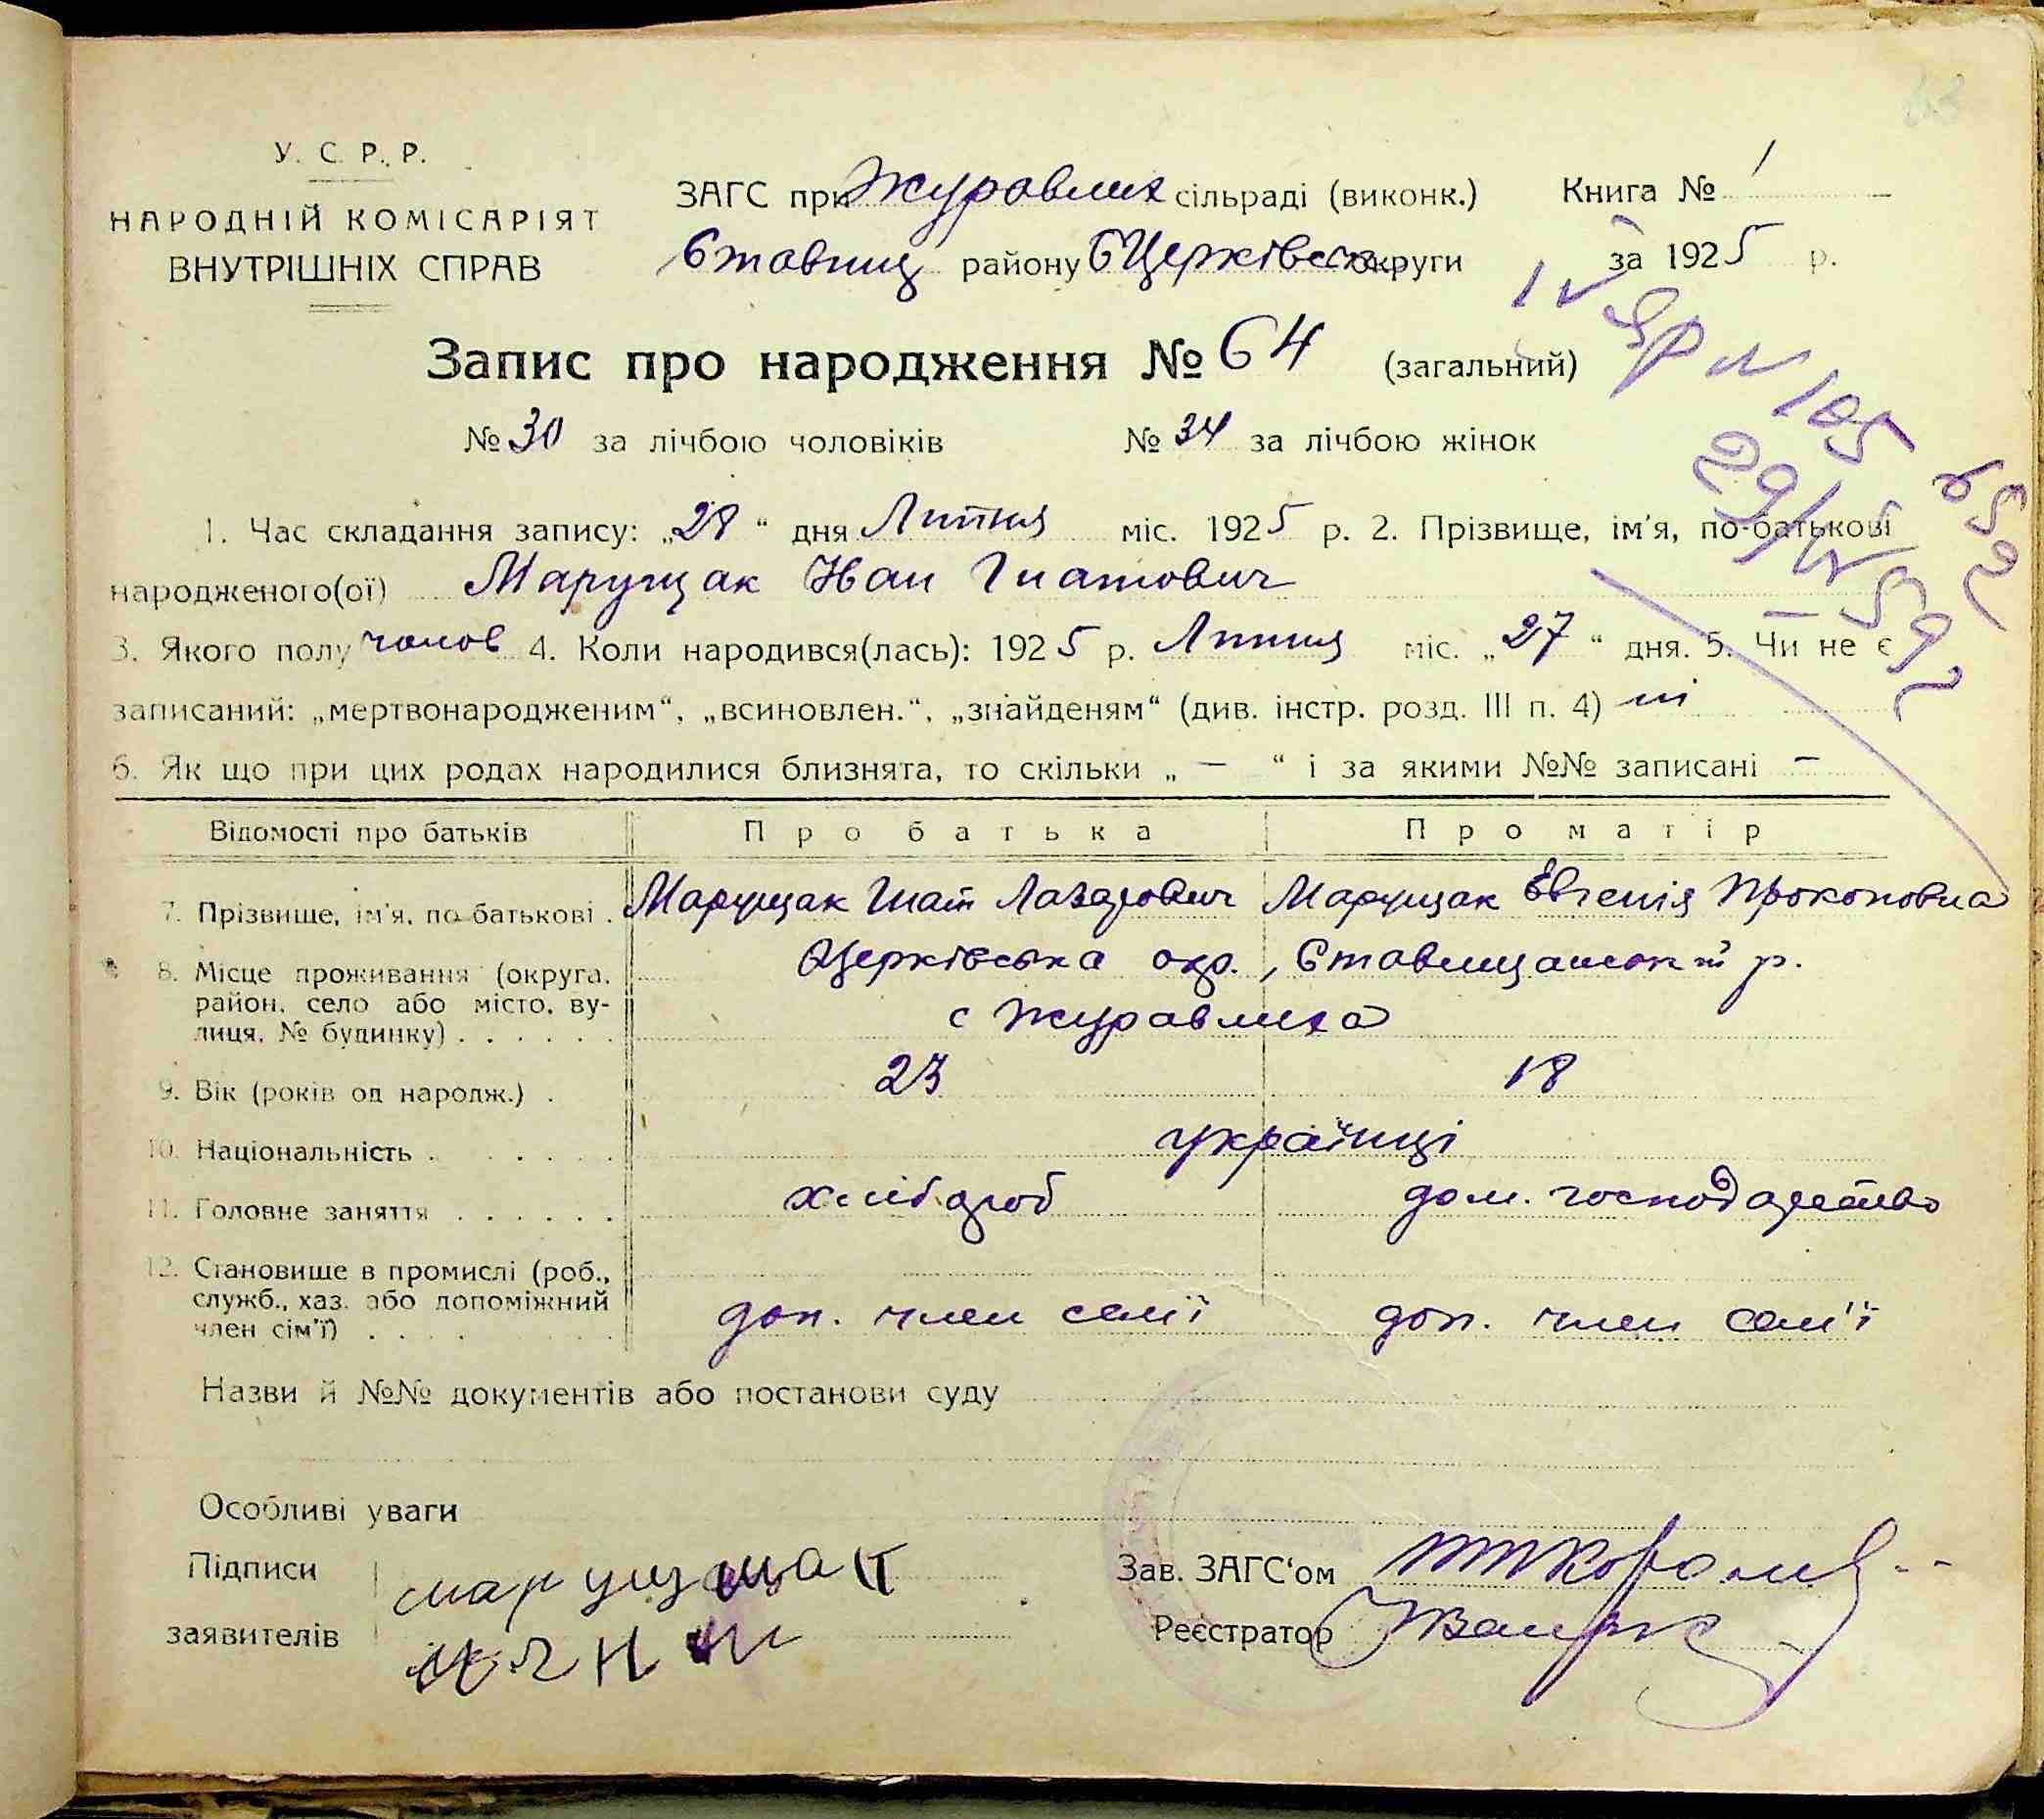 У. С. Р. Р.
НАРОДНІЙ КОМІСАРІЯТ
ВНУТРІШНІХ СПРАВ
ЗАГС при Журавлих сільраді (виконк.)
Ставищ району БЦерківськ округи
Книга № 1
за 1925 р.
Запис про народження № 64 (загальний)
№ 30 за лічбою чоловіків № 34 за лічбою жінок
1. Час складання запису: „28“ дня Липня міс. 1925 р. 2. Прізвище, ім'я, по-батькові
народженого(ої) Марущак Іван Гнатович
3. Якого полу чолов 4. Коли народився(лась): 1925 р. Липня міс. „27“ дня. 5. Чи не є
записаний: „мертвонародженим“, „всиновлен.“, „знайденям“ (див. інстр. розд. III п. 4) ні
6. Як що при цих родах народилися близнята, то скільки „ — “ і за якими №№ записані —
Відомості про батьків Про батька Про матір
7. Прізвище, ім'я, по-батькові . Марущак Гнат Лазарович Марущак Евгенія Прокоповна
8. Місце проживання (округа, район, село або місто, вулиця, № будинку) . . . . . . БЦерківська окр., Ставищанський р.
с Журавлиха
9. Вік (років од народж.) . 23 18
10. Національність . . . . . . українці
11. Головне заняття . . . . . . хлібороб дом. господарство
12. Становище в промислі (роб., служб., хаз. або допоміжний член сім'ї) . . . . доп. член семї доп. член сем'ї
Назви й №№ документів або постанови суду
Особливі уваги
Підписи
заявителів
марущак
Зав. ЗАГС'ом
Реєстратор